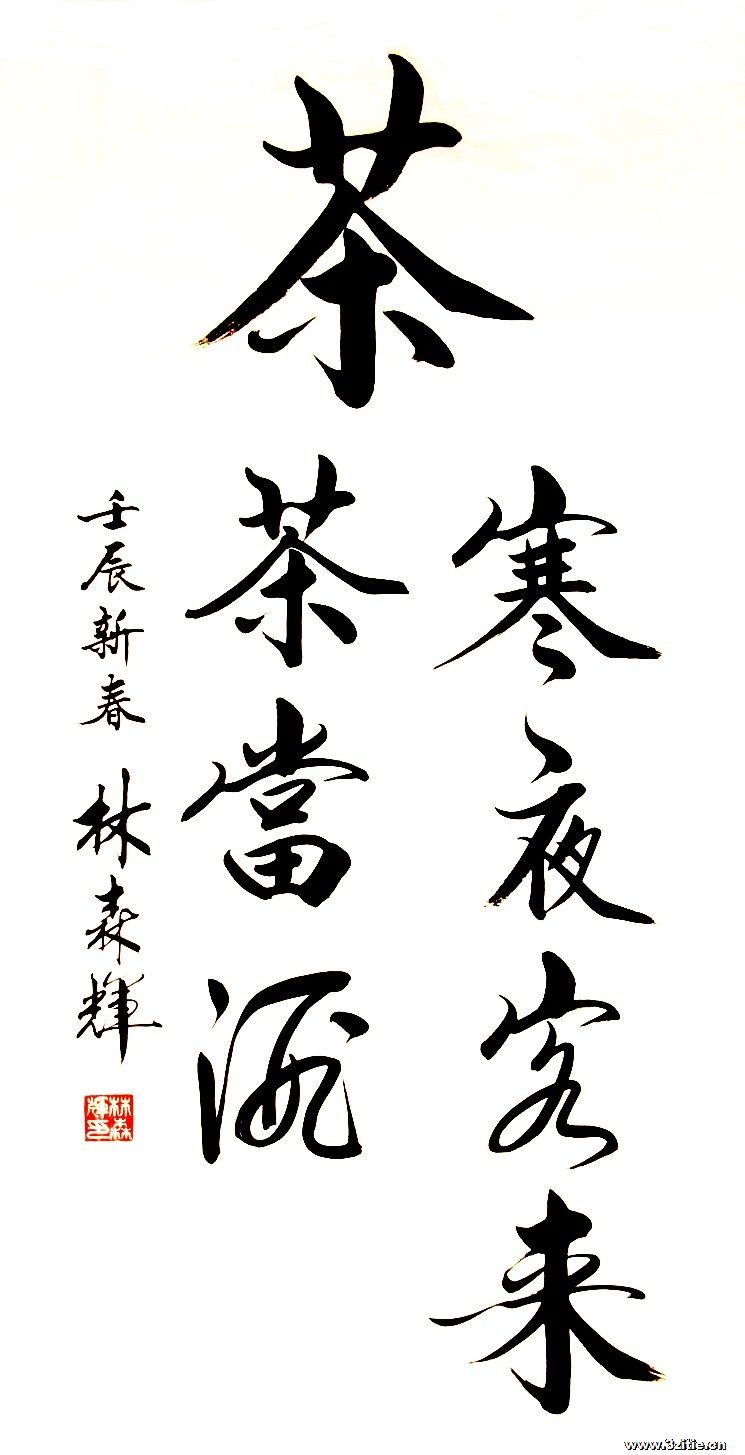 茶
寒夜客来
茶當酒
壬辰新春 林森輝
林森輝印
www.3zitie.cn